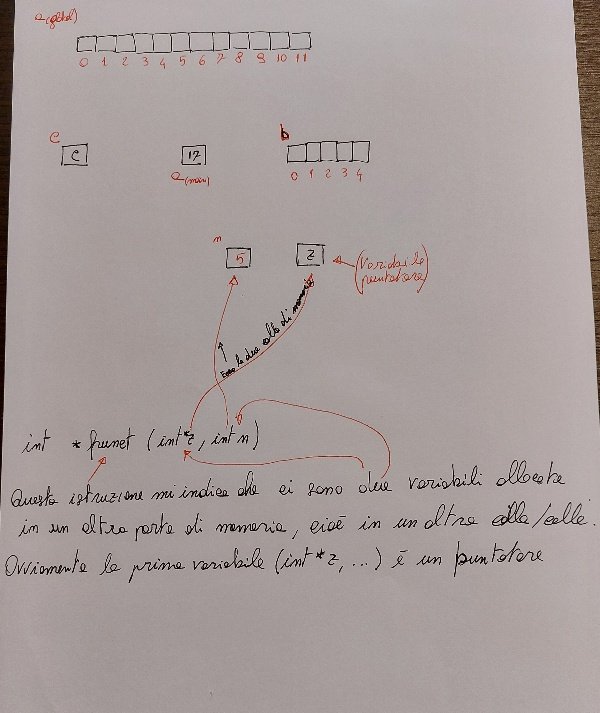 a (global)
0 1 2 3 4 5 6 7 8 9 10 11
c
c
17
a (main)
b
0 1 2 3 4
n
5
z
(variabile
puntatore)
Ecco le due celle di memoria
int *funct (int *z, int n)
Questa istruzione mi indica che ci sono due variabili allocate
in un altra parte di memoria, cioè in un altra cella/celle.
Ovviamente la prima variabile (int *z, ...) è un puntatore